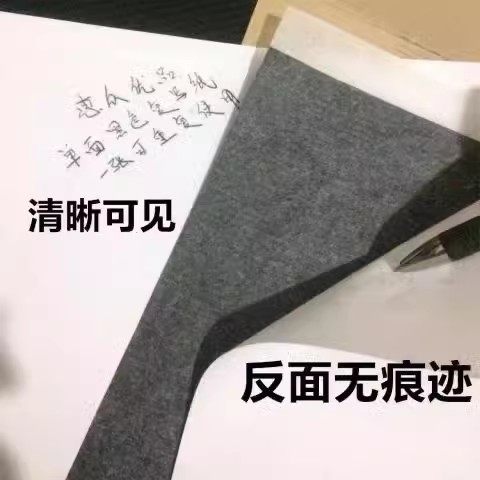 恋众优品
单面黑色复写纸
一张可重复使用
清晰可见
反面无痕迹